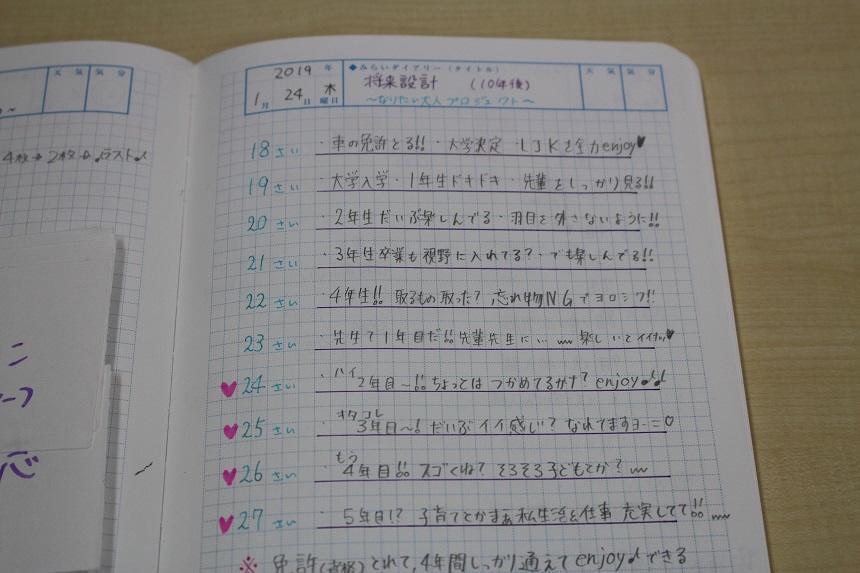 天気 気分
4枚→2枚→♪ラスト♪
ニ
ーフ
心
2019年
1月24日 木曜日
◆みらいダイアリー(タイトル)
将来設計 (10年後)
~なりたい大人プロジェクト~
天気 気分
18さい ・車の免許とる!! ・大学決定 ・LJKを全力enjoy♥
19さい ・大学入学・1年生ドキドキ ・先輩をしっかり見る!!
20さい ・2年生だいぶ楽しんでる・羽目を外さないように!!
21さい ・3年生卒業も視野に入れてる?・でも楽しんでる!!
22さい ・4年生!! 取るもの取った? 忘れ物NGでヨロシク!!
23さい ・先生で1年目だ!!先輩先生に… 楽しいとイイナ♥
ハイ
♥24さい 2年目~!!ちょっとは つかめてるカナ? enjoy♪♪
オタコレ
♥25さい 3年目~! だいぶイイ感じ? なれてますヨーニ♡
もう
♥26さい 4年目!! スゴくね? そろそろ子どもとか?
♥27さい 5年目!? 子育てとかまぁ私生活&仕事 充実してて!!
※ 免許とれて,4年間しっかり通えてenjoy♪できる